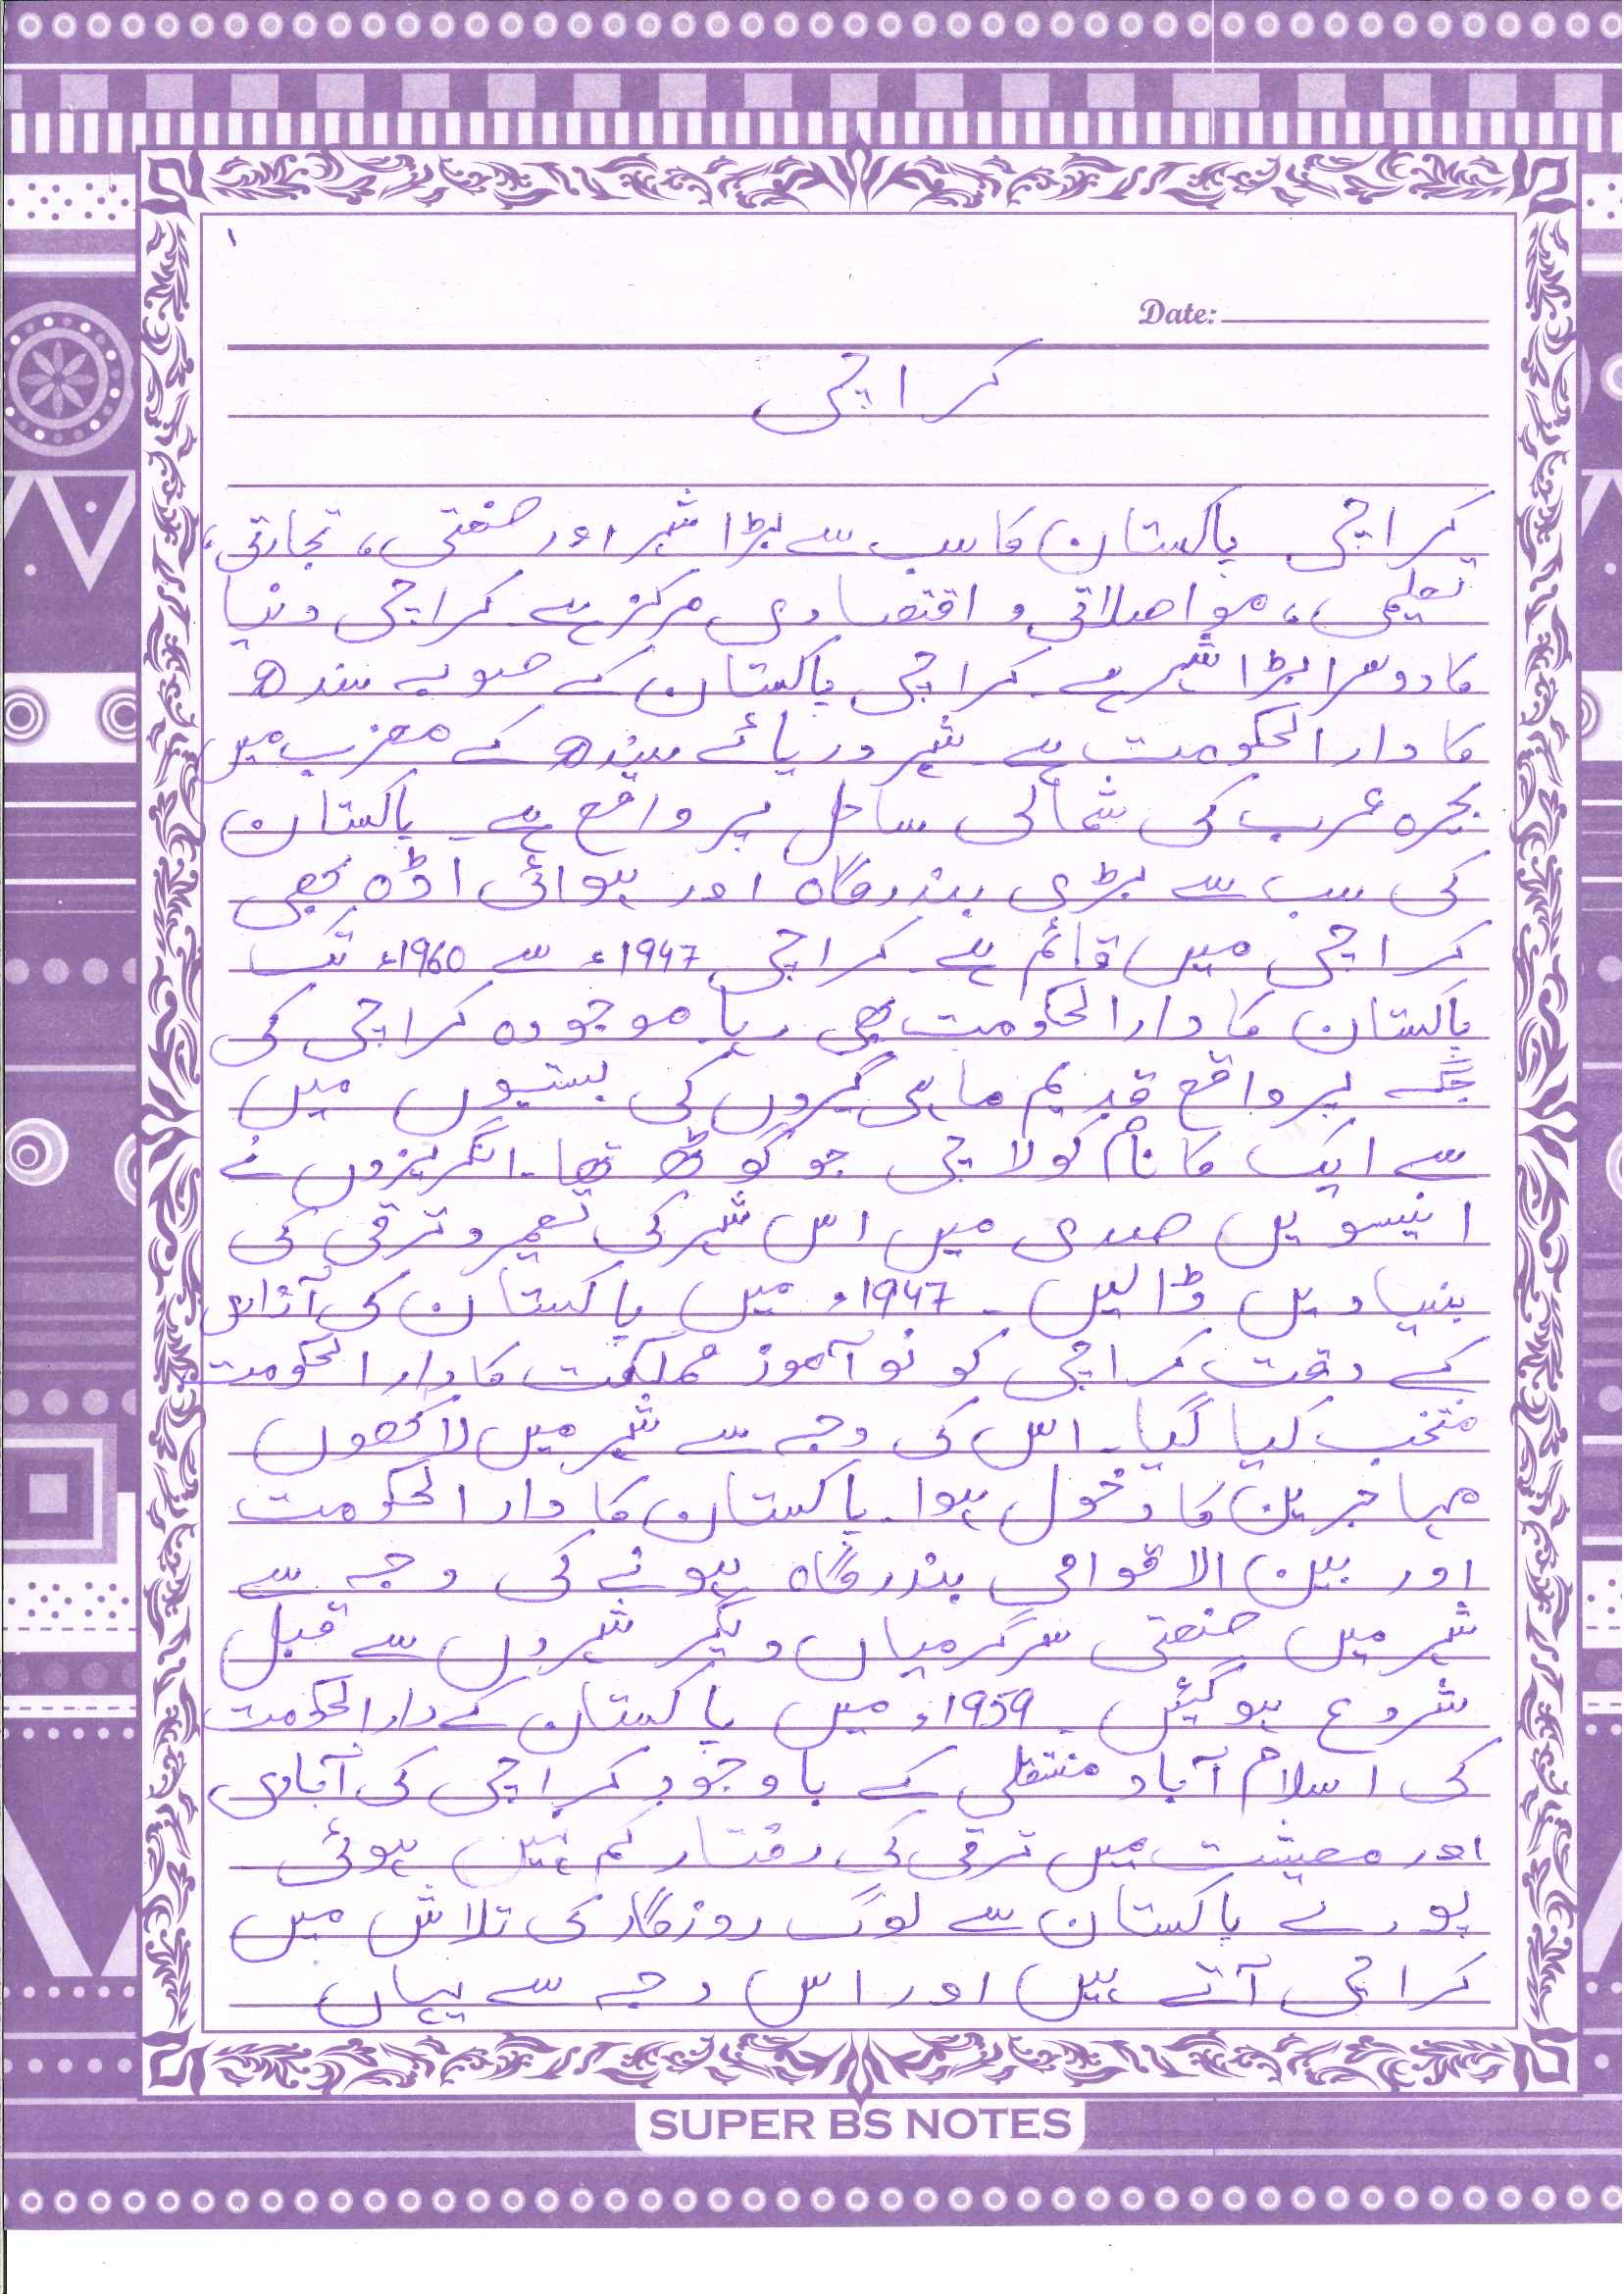 ۱
Date:
کراچی
کراچی پاکستان کا سب سے بڑا شہر اور صنعتی، تجارتی،
تعلیمی، مواصلاتی و اقتصادی مرکز ہے۔ کراچی دنیا
کا دوسرا بڑا شہر ہے۔ کراچی پاکستان کے صوبہ سندھ
کا دارالحکومت ہے۔ شہر دریائے سندھ کے مغرب میں
بحرہ عرب کی شمالی ساحل پر واقع ہے۔ پاکستان
کی سب سے بڑی بندرگاہ اور ہوائی اڈہ بھی
کراچی میں قائم ہے۔ کراچی 1947ء سے 1960ء تک
پاکستان کا دارالحکومت بھی رہا۔ موجودہ کراچی کی
جگہ پر واقع قدیم ماہی گیروں کی بستیوں میں
سے ایک کا نام کولاچی جو گوٹھ تھا۔ انگریزوں نے
انیسویں صدی میں اس شہر کی تعمیر و ترقی کی
بنیادیں ڈالیں۔ 1947ء میں پاکستان کی آزادی
کے وقت کراچی کو نو آموز مملکت کا دارالحکومت
منتخب کیا گیا۔ اس کی وجہ سے شہر میں لاکھوں
مہاجرین کا دخول ہوا۔ پاکستان کا دارالحکومت
اور بین الاقوامی بندرگاہ ہونے کی وجہ سے
شہر میں صنعتی سرگرمیاں دیگر شہروں سے قبل
شروع ہوگئیں۔ 1959ء میں پاکستان کے دارالحکومت
کی اسلام آباد منتقلی کے باوجود کراچی کی آبادی
اور معیشت میں ترقی کی رفتار کم نہیں ہوئی۔
پورے پاکستان سے لوگ روزگار کی تلاش میں
کراچی آتے ہیں اور اس وجہ سے یہاں
SUPER BS NOTES